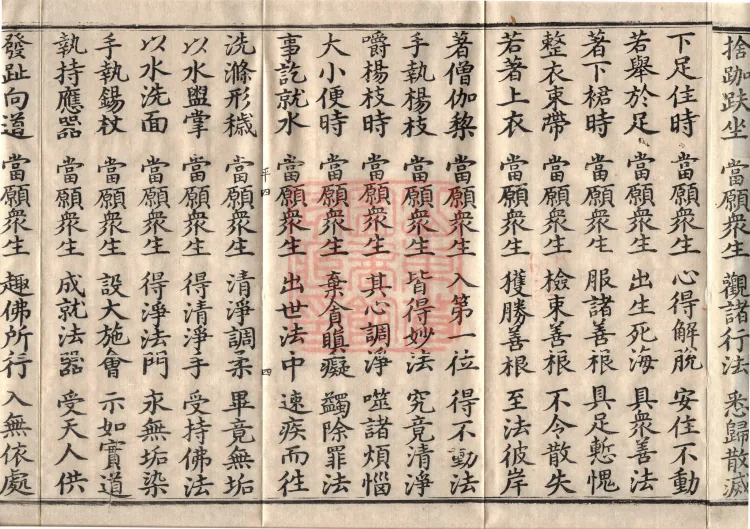 捨跏趺坐 當願衆生 觀諸行法 悉歸散滅
下足住時 當願衆生 心得解脫 安住不動
若舉於足 當願衆生 出生死海 具衆善法
著下裙時 當願衆生 服諸善根 具足慙愧
整衣束帶 當願衆生 檢束善根 不令散失
若著上衣 當願衆生 獲勝善根 至法彼岸
著僧伽黎 當願衆生 入第一位 得不動法
手執楊枝 當願衆生 皆得妙法 究竟清淨
嚼楊枝時 當願衆生 其心調淨 噬諸煩惱
大小便時 當願衆生 棄貪瞋癡 蠲除罪法
事訖就水 當願衆生 出世法中 速疾而往
平四 四
洗滌形穢 當願衆生 清淨調柔 畢竟無垢
以水盥掌 當願衆生 得清淨手 受持佛法
以水洗面 當願衆生 得淨法門 永無垢染
手執錫杖 當願衆生 設大施會 示如實道
執持應器 當願衆生 成就法器 受天人供
發趾向道 當願衆生 趣佛所行 入無依處